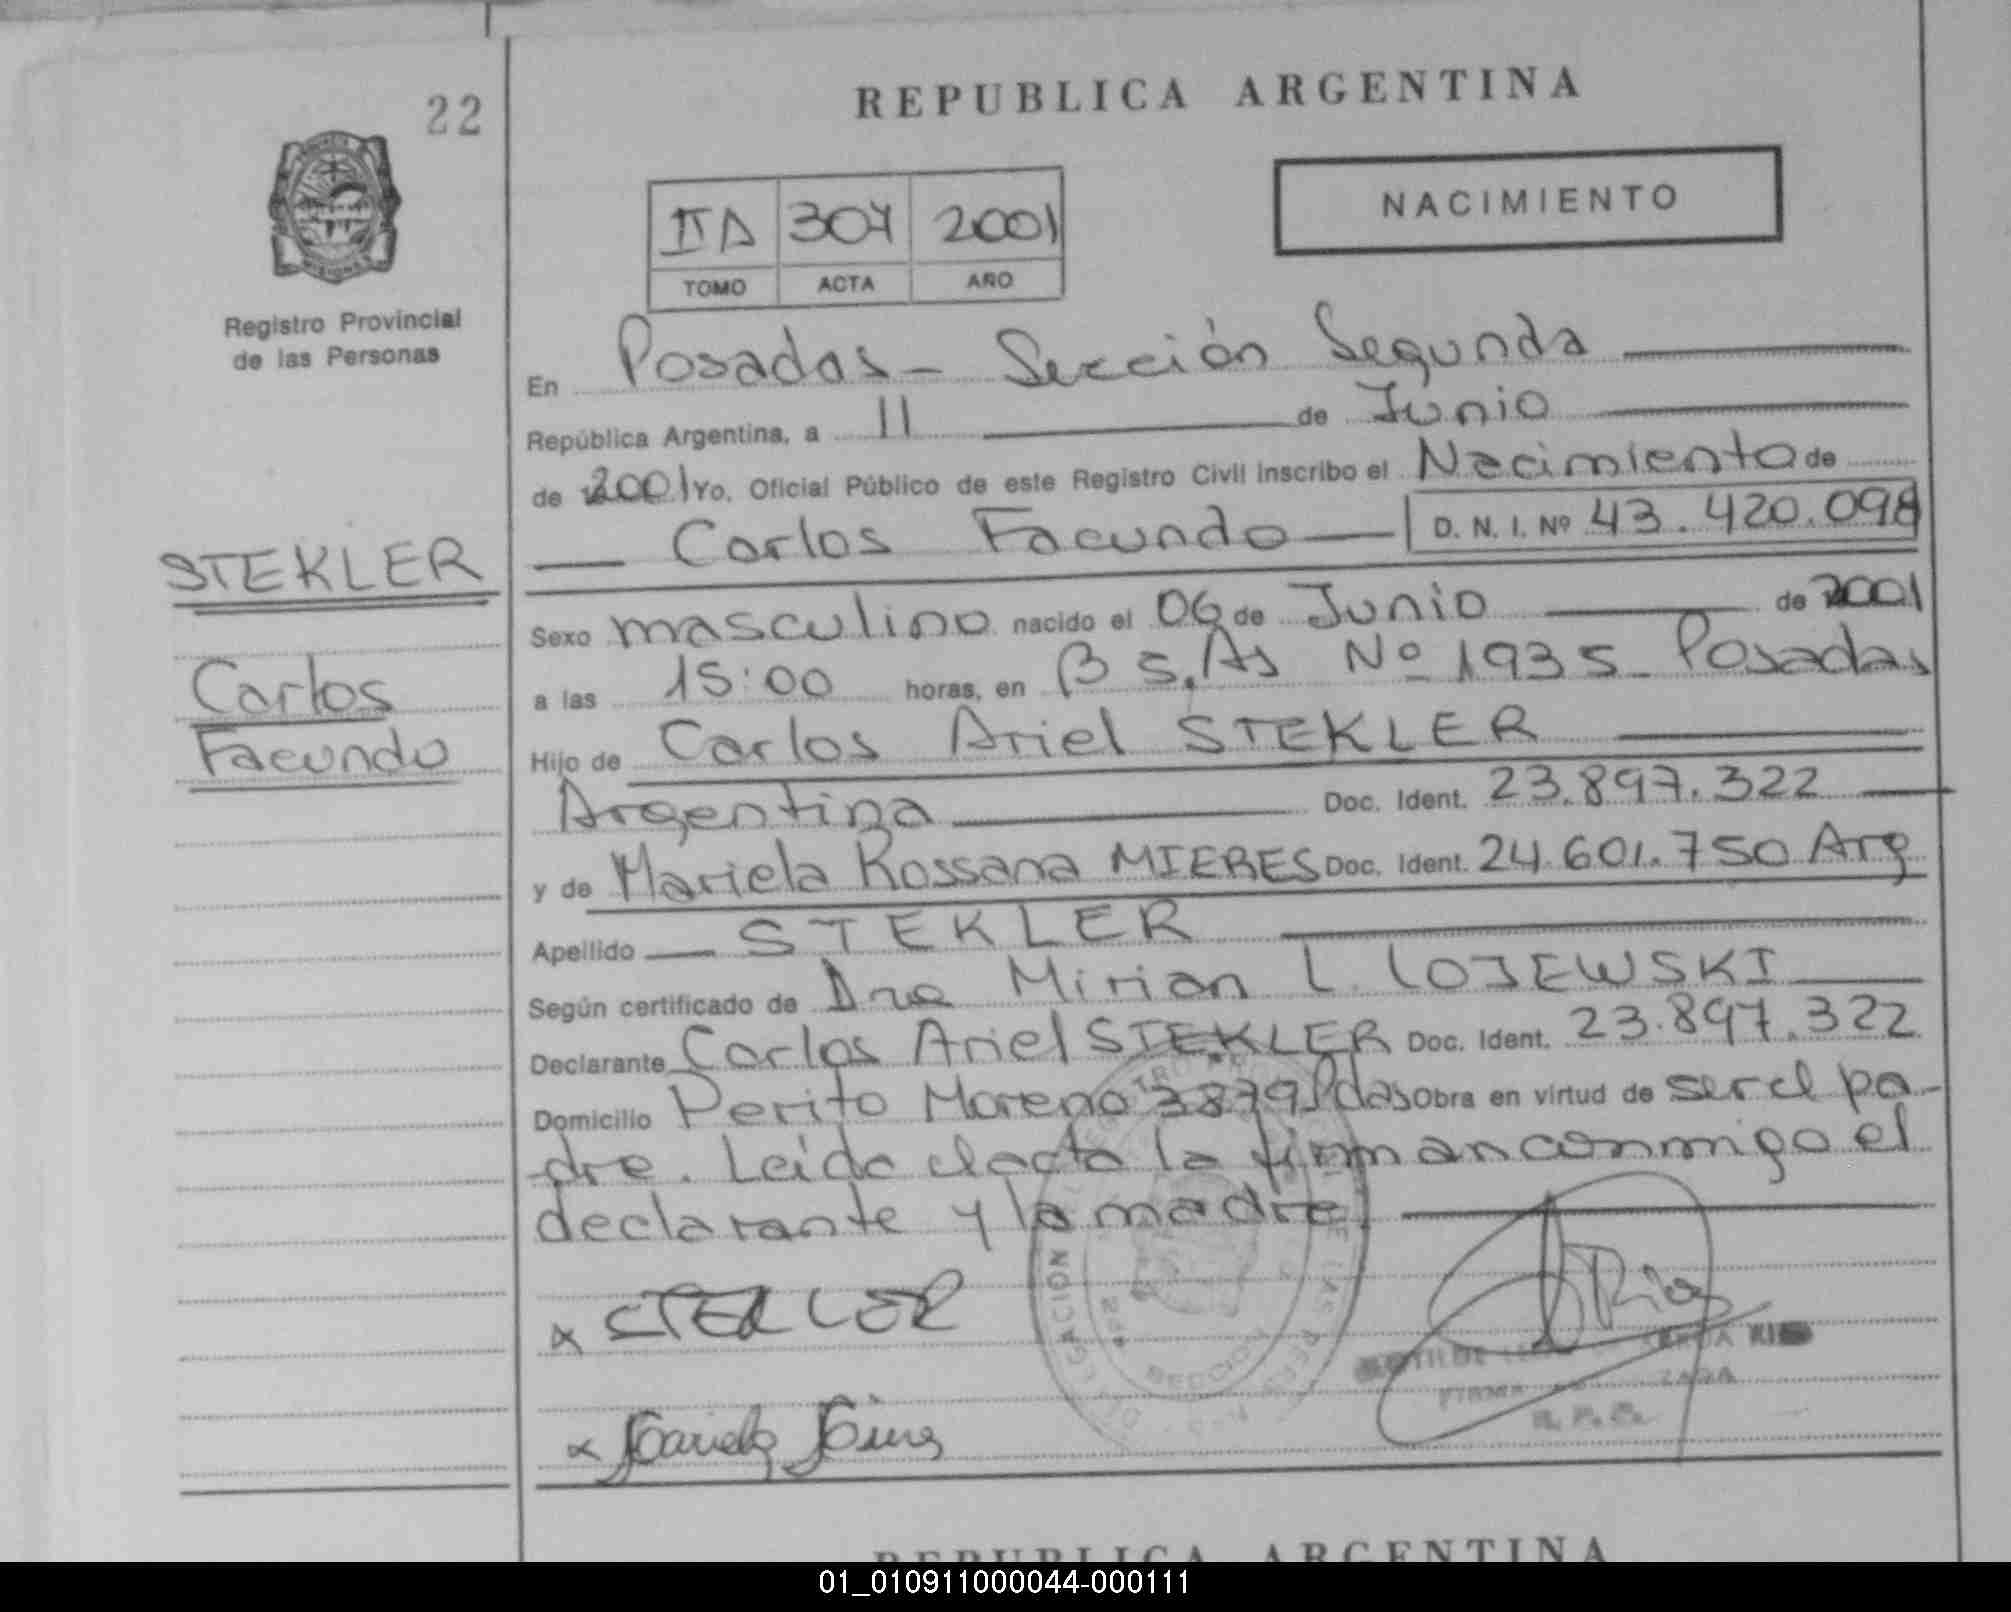 22
REPUBLICA ARGENTINA
NACIMIENTO
IIA 307 2001
TOMO ACTA AÑO
MISIONES
Registro Provincial
de las Personas
En Posadas - Sección Segunda
República Argentina, a 11 de Junio
de 2001 Yo, Oficial Público de este Registro Civil inscribo el Nacimiento de
Carlos Facundo D. N. I. Nº 43.420.098
STEKLER
Carlos
Facundo
Sexo masculino nacido el 06 de Junio de 2001
a las 15:00 horas, en Bs. As Nº 1935 - Posadas
Hijo de Carlos Ariel STEKLER
Argentina Doc. Ident. 23.897.322
y de Mariela Rossana MIERES Doc. Ident. 24.601.750 Arg
Apellido STEKLER
Según certificado de Dra Mirian L. LOJEWSKI
Declarante Carlos Ariel STEKLER Doc. Ident. 23.897.322
Domicilio Perito Moreno 3879 Pdas Obra en virtud de ser el pa-
dre. Leida el acta la firman conmigo el
declarante y la madre
x STEKLER
x
REPUBLICA ARGENTINA
01_010911000044-000111